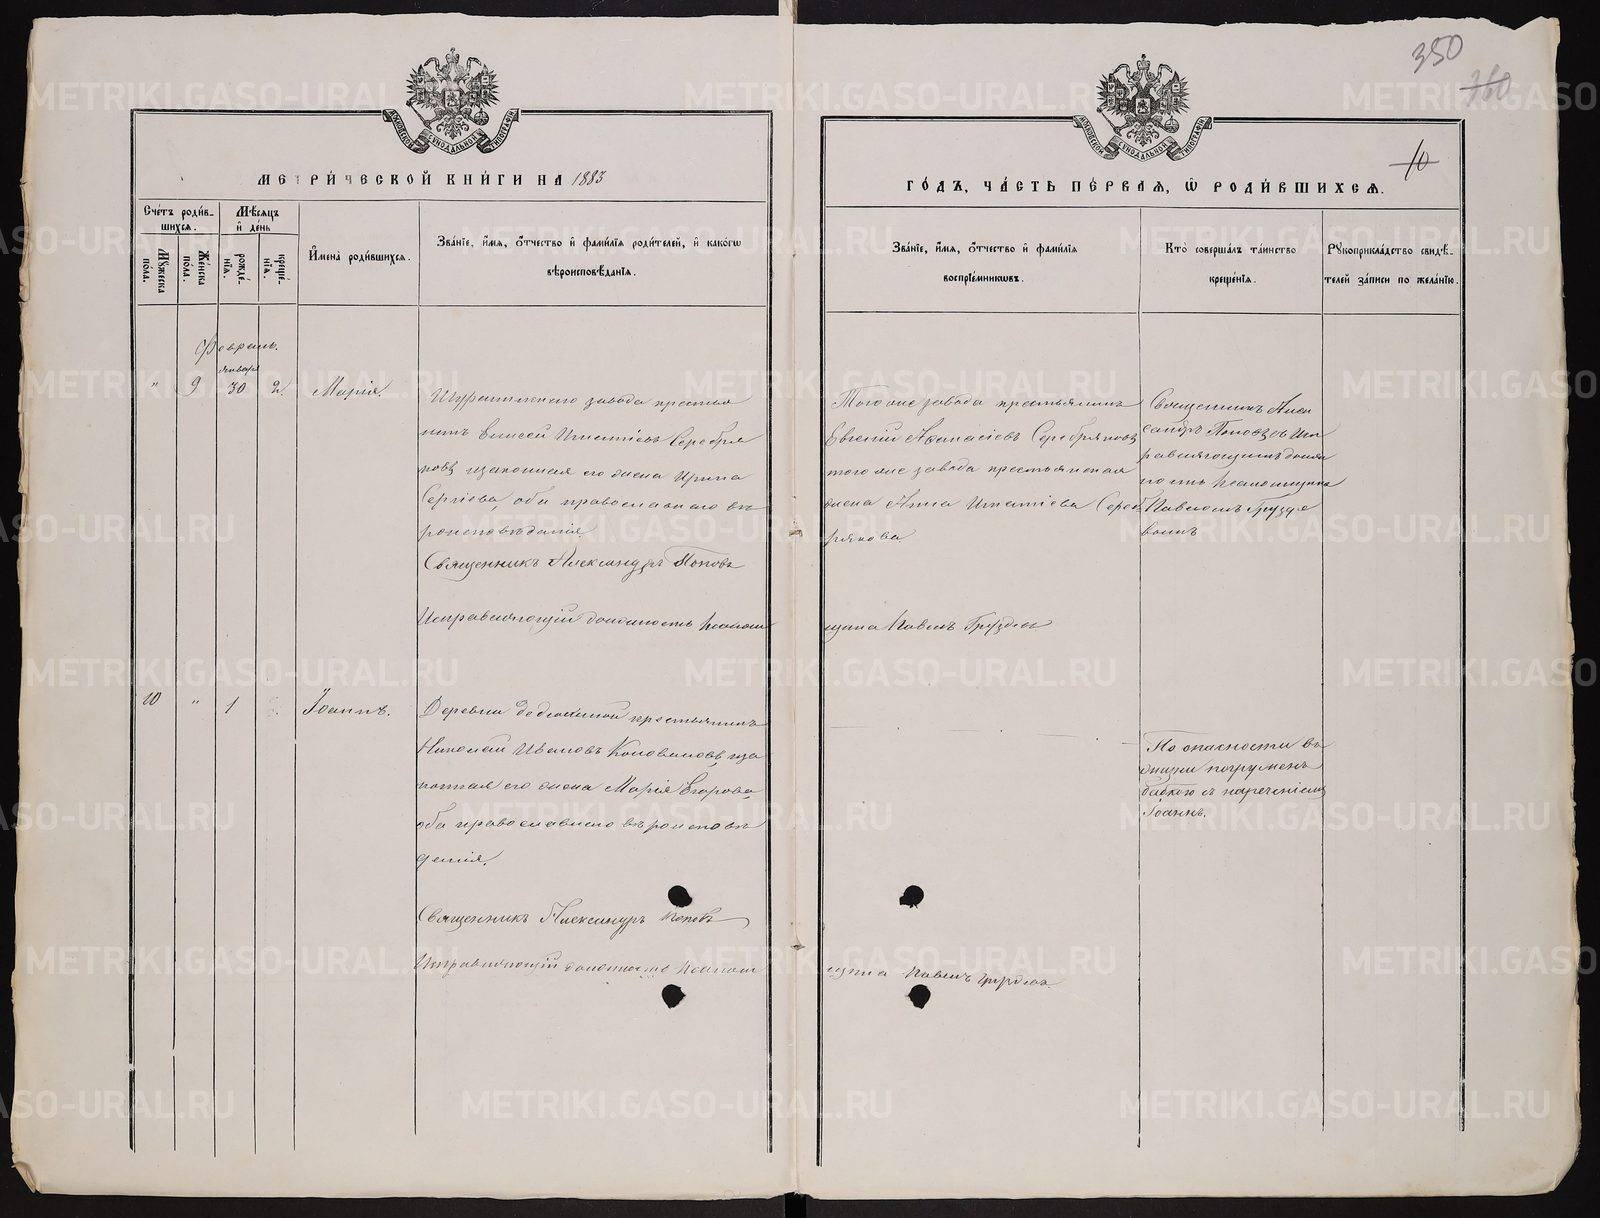 350
360
10
МОСКОВСКОЙ СѴНОДАЛЬНОЙ ТИПОГРАФІИ
МОСКОВСКОЙ СѴНОДАЛЬНОЙ ТИПОГРАФІИ
МЕТРИ́ЧЕСКОЙ КНИ́ГИ НА 1883
ГО́ДЪ, ЧА́СТЬ ПЕ́РВАЯ, Ѡ РОДИ́ВШИХСЯ.
Сче́тъ роди́в-
шихся.
Мѣ́сяцъ
и де́нь
Мꙋжеска по́ла.
Же́нска по́ла.
рожде́-
нїя.
креще́-
нїя.
И҆мена̀ роди́вшихся.
Зва́нїе, и҆́мя, ѻ҆́тчество и҆ фами́лїя роди́телей, и҆ како́гѡ
вѣроисповѣ́данїя.
Зва́нїе, и҆́мя, ѻ҆́тчество и҆ фами́лїя
воспрїе́мникѡвъ.
Кто̀ соверша́лъ та́инство
креще́нїя.
Рꙋкоприкла́дство свидѣ́-
телей за́писи по жела́нїю.
Февраль.
января
" 9 30 2. Марія.
завода кресть
нинъ Елисей Игнатіевъ Серебря
ковъ и законная его жена Ирина
Сергіева, оба православнаго вѣ
роисповѣданія
Священникъ Александръ Поповъ
Исправляющій должность псалом
щика Павелъ Груздевъ
Того же завода крестьянинъ
Евгеній Аѳанасіевъ Серебряковъ
того же завода крестьянская
жена Анна Игнатіева Сереб
рякова
Священникъ Алек
сандръ Поповъ съ исп
равляющимъ долж
ность псаломщика
Павломъ Груздe
вымъ
10 " 1 Іоаннъ.
Деревни крестьянинъ
Николай Ивановъ Коноваловъ, за
конная его жена Марія Егорова,
оба православнаго вѣроисповѣ
данія.
Священникъ Александръ Поповъ
Исправляющій должность псалом
щика Павелъ Груздевъ
По опасности въ
жизни погруженъ
бабкою съ нареченіемъ
Іоаннъ.
METRIKI.GASO-URAL.RU